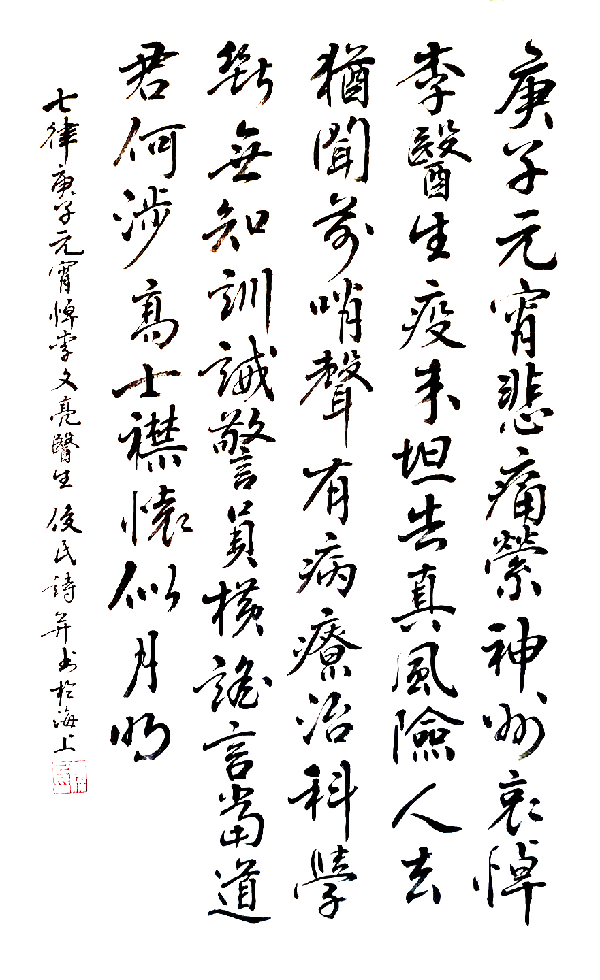 庚子元宵悲痛縈神州哀悼
李醫生疫来坦告真風險人去
猶聞前哨聲有病療治科學
斷無知訓誡警員橫謠言當道
君何涉高士襟懷似月明
七律庚子元宵悼李文亮醫生 俊民詩并書於海上